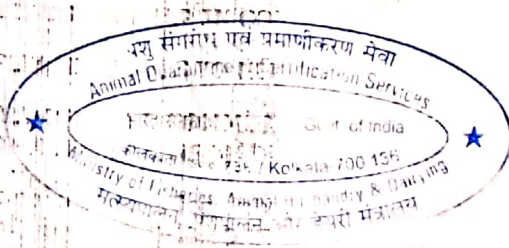 पशु संगरोध एवं प्रमाणीकरण सेवा
Animal Quarantine Certification Services
Govt of India
कोलकाता 736 / Kolkata-700 136
Ministry of Fisheries, Animal Husbandry & Dairying
मत्स्यपालन, पशुपालन और डेयरी मंत्रालय